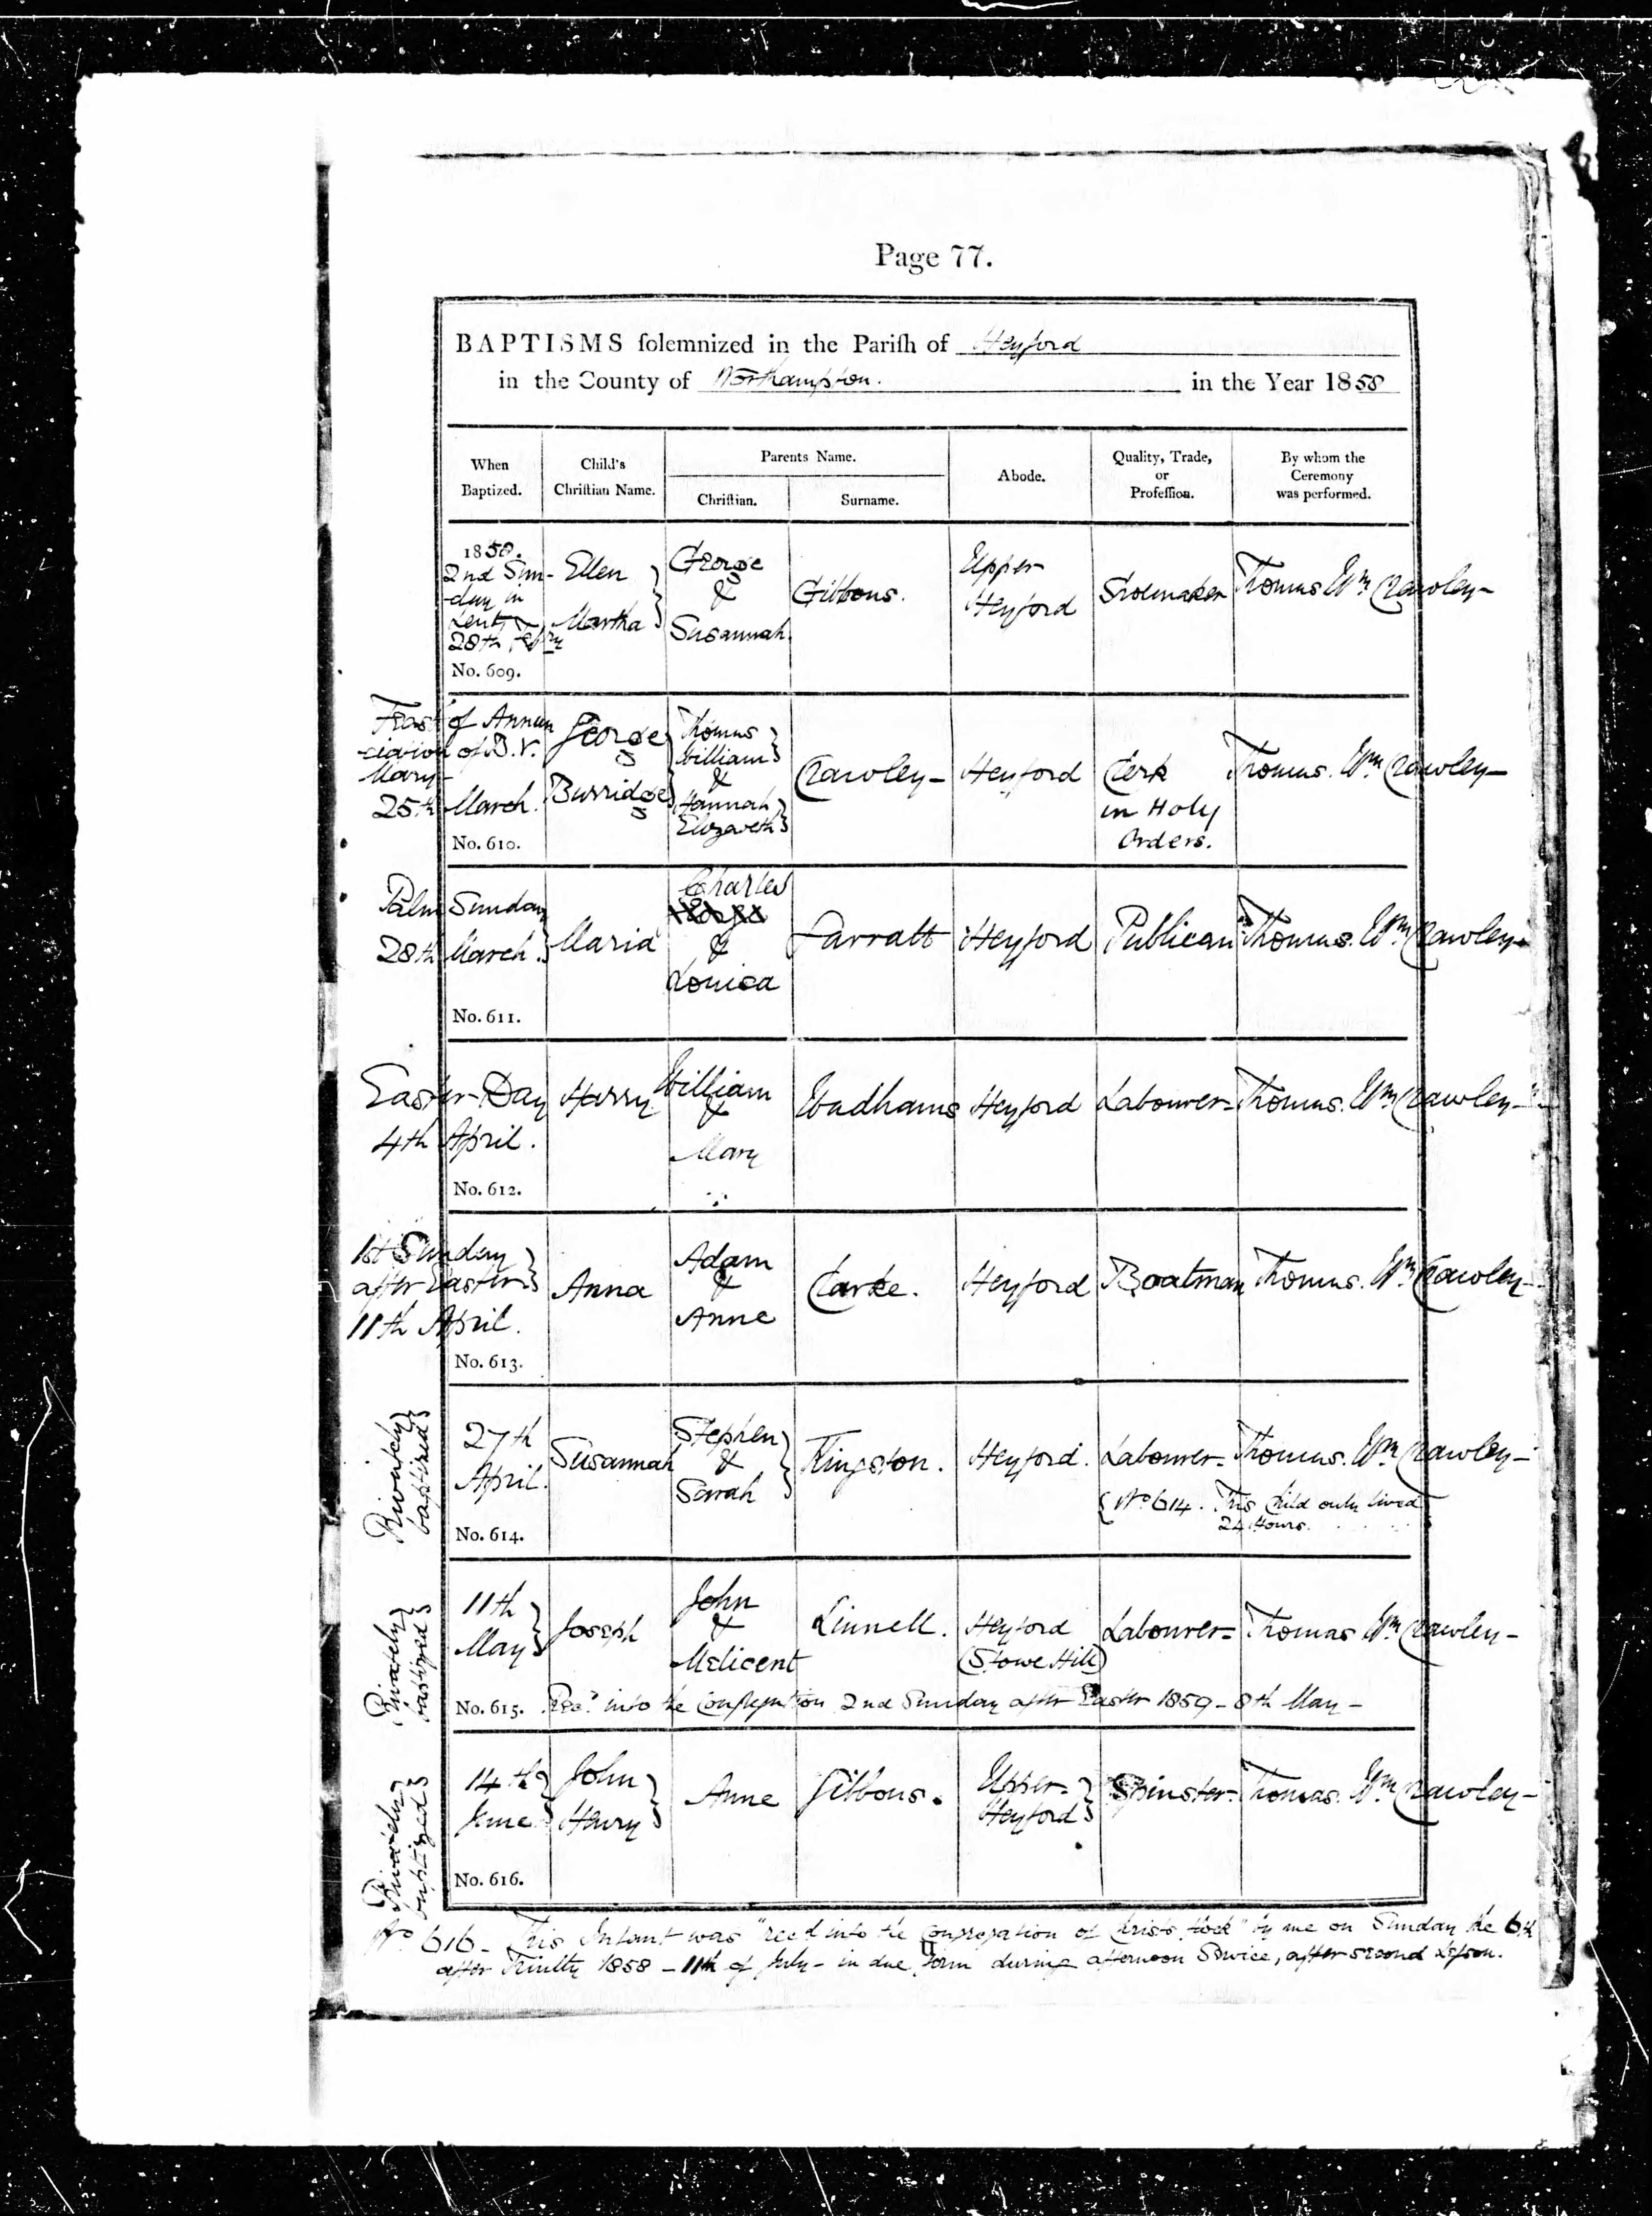 Page 77.
BAPTISMS solemnized in the Parish of Heyford
in the County of Northampton. in the Year 1858
When Baptized.
Child's Christian Name.
Parents Name.
Christian.
Surname.
Abode.
Quality, Trade, or Profession.
By whom the Ceremony was performed.
1858.
2nd Sun-
-day in
Lent,
28th Febry
No. 609.
Ellen
Martha
George
&
Susannah
Gibbons.
Upper
Heyford
Shoemaker
Thomas Wm Crawley-
Feast of Annun
-ciation of B.V.
Mary-
25th March.
No. 610.
George
Burridge
Thomas
William
&
Hannah
Elizabeth
Crawley-
Heyford
Clerk
in Holy
Orders.
Thomas. Wm Crawley-
Palm Sunday
28th March.
No. 611.
Maria
Charles
&
Louisa
Farratt
Heyford
Publican
Thomas. Wm Crawley-
Easter-Day
4th April.
No. 612.
Harry
William
&
Mary
Wadhams
Heyford
Labourer-
Thomas. Wm Crawley-
1st Sunday
after Easter
11th April.
No. 613.
Anna
Adam
&
Anne
Clarke.
Heyford
Boatman
Thomas. Wm Crawley-
Privately
baptized
27th
April.
No. 614.
Susannah
Stephen
&
Sarah
Kingston.
Heyford.
Labourer-
Thomas. Wm Crawley-
No 614. This Child only lived
24 Hours.
Privately
baptized
11th
May
No. 615.
Joseph
John
&
Melicent
Linnell.
Heyford
(Stowe Hill)
Labourer-
Thomas Wm Crawley-
Recd into the Congregation 2nd Sunday after Easter 1859 - 8th May-
Privately
baptized
14th
June
No. 616.
John
Henry
Anne
Gibbons.
Upper-
Heyford
Spinster-
Thomas. Wm Crawley-
No 616- This Infant was "recd into the Congregation of Christ's flock" by me on Sunday the 6th
after Trinity 1858 - 11th of July- in due form during afternoon Service, after second Lesson.